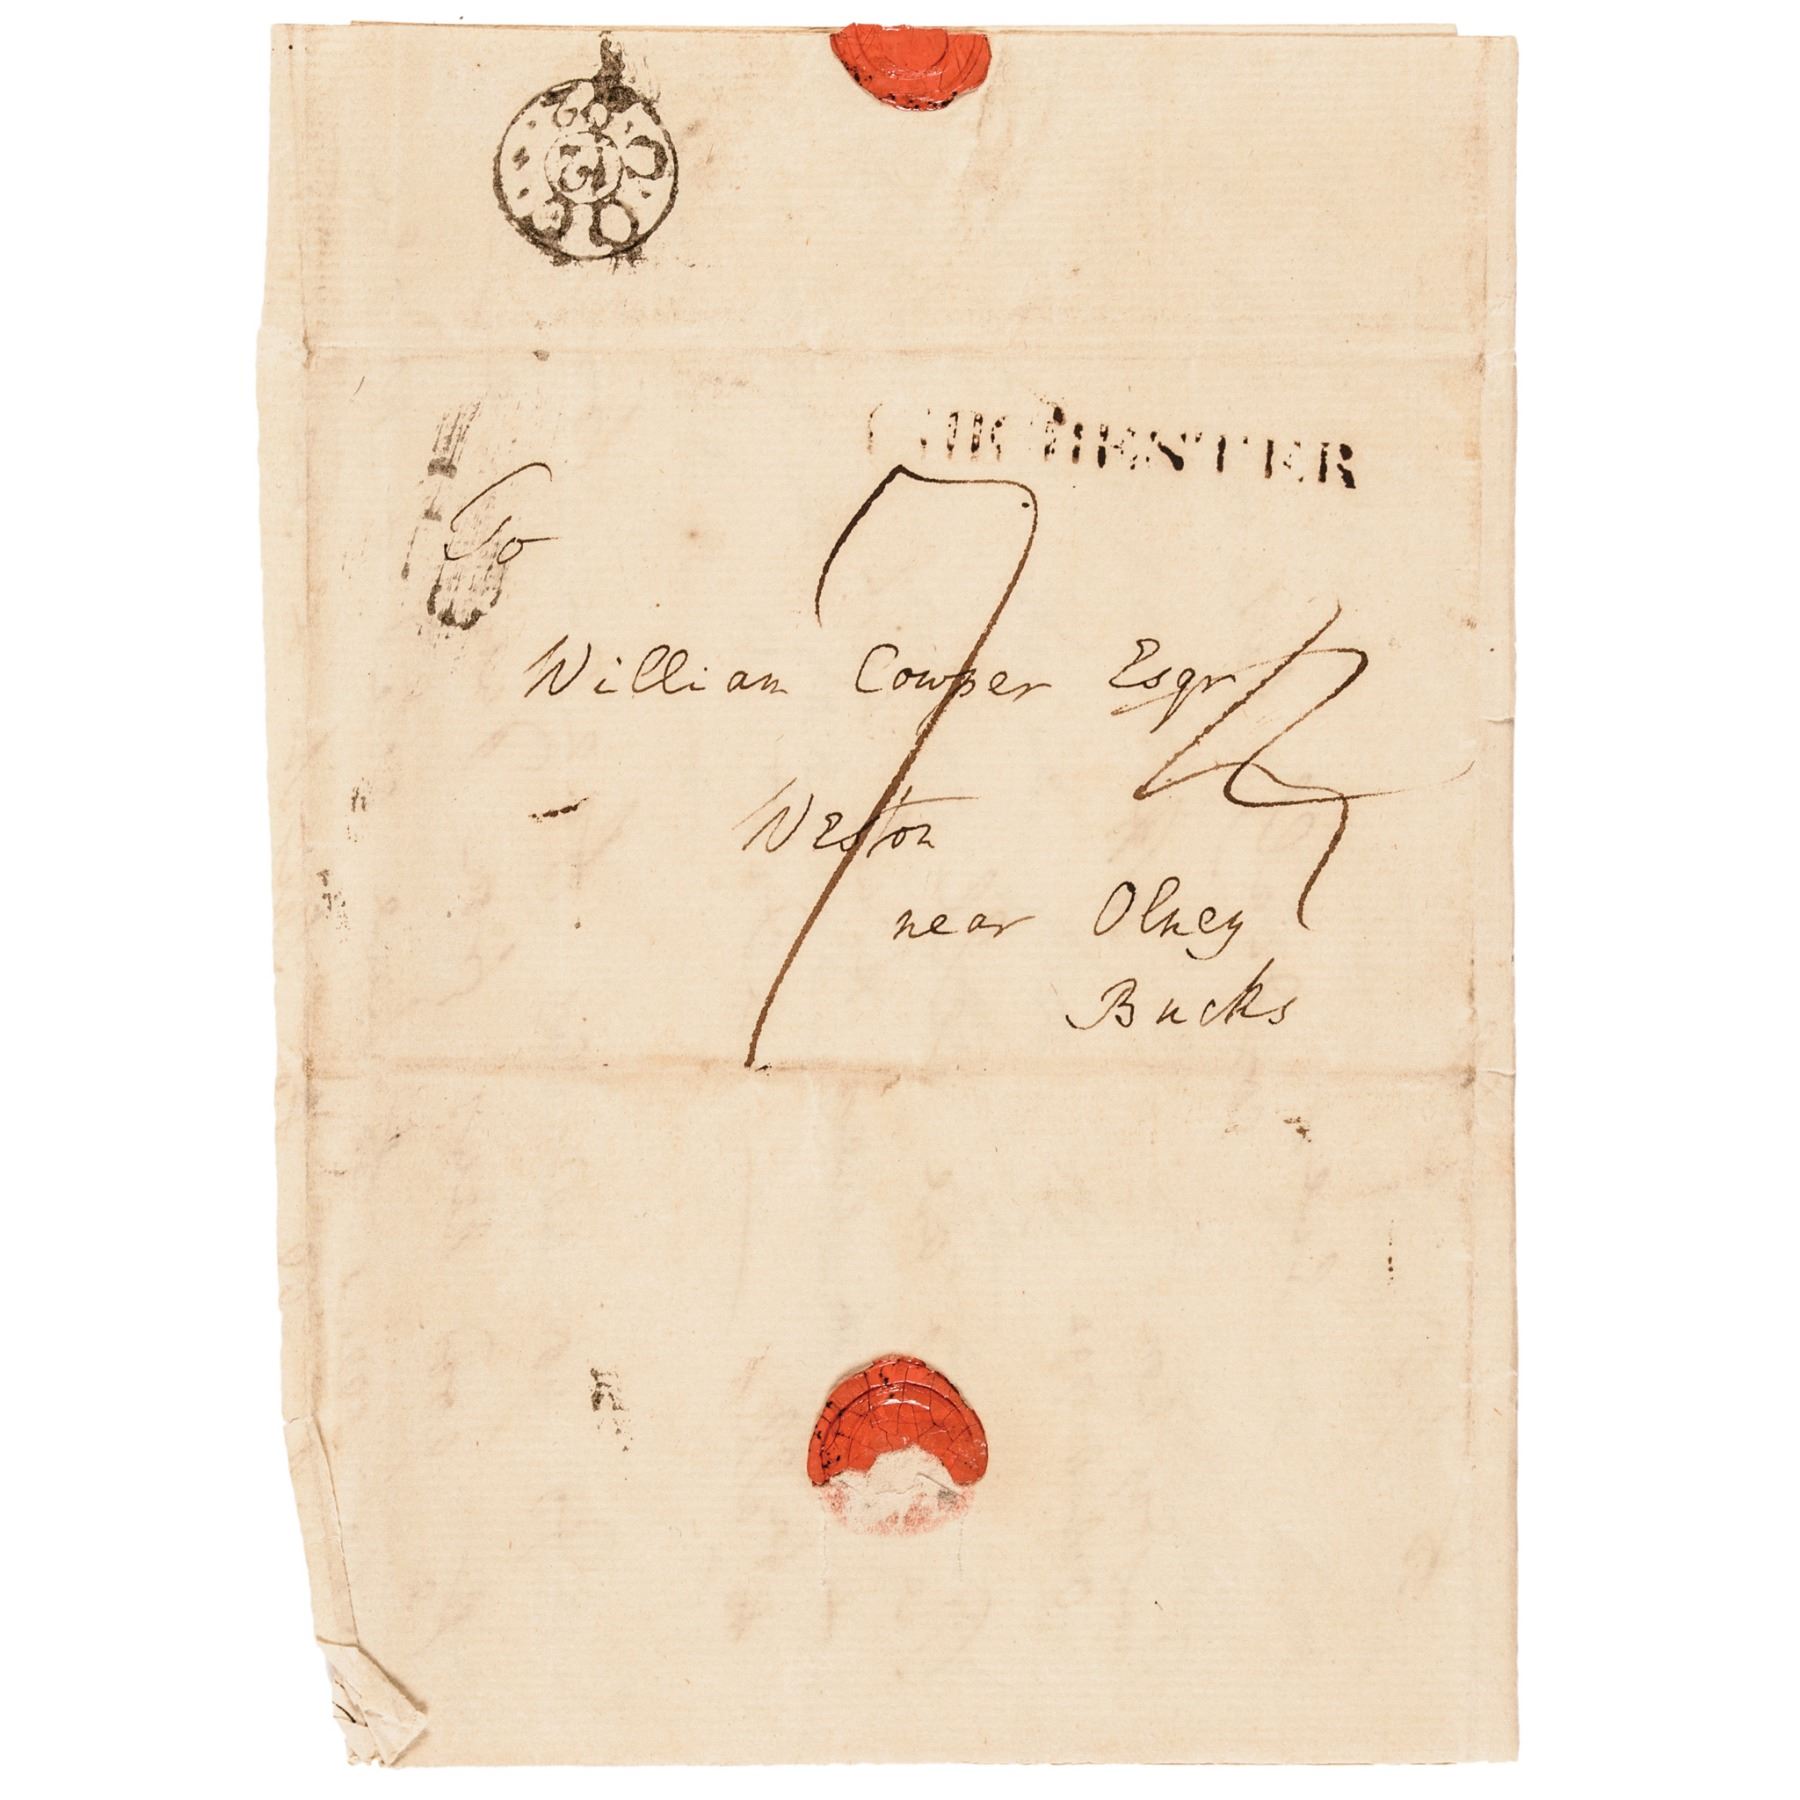 CHICHESTER
To
7
William Cowper Esqr
Weston
near Olney
Bucks